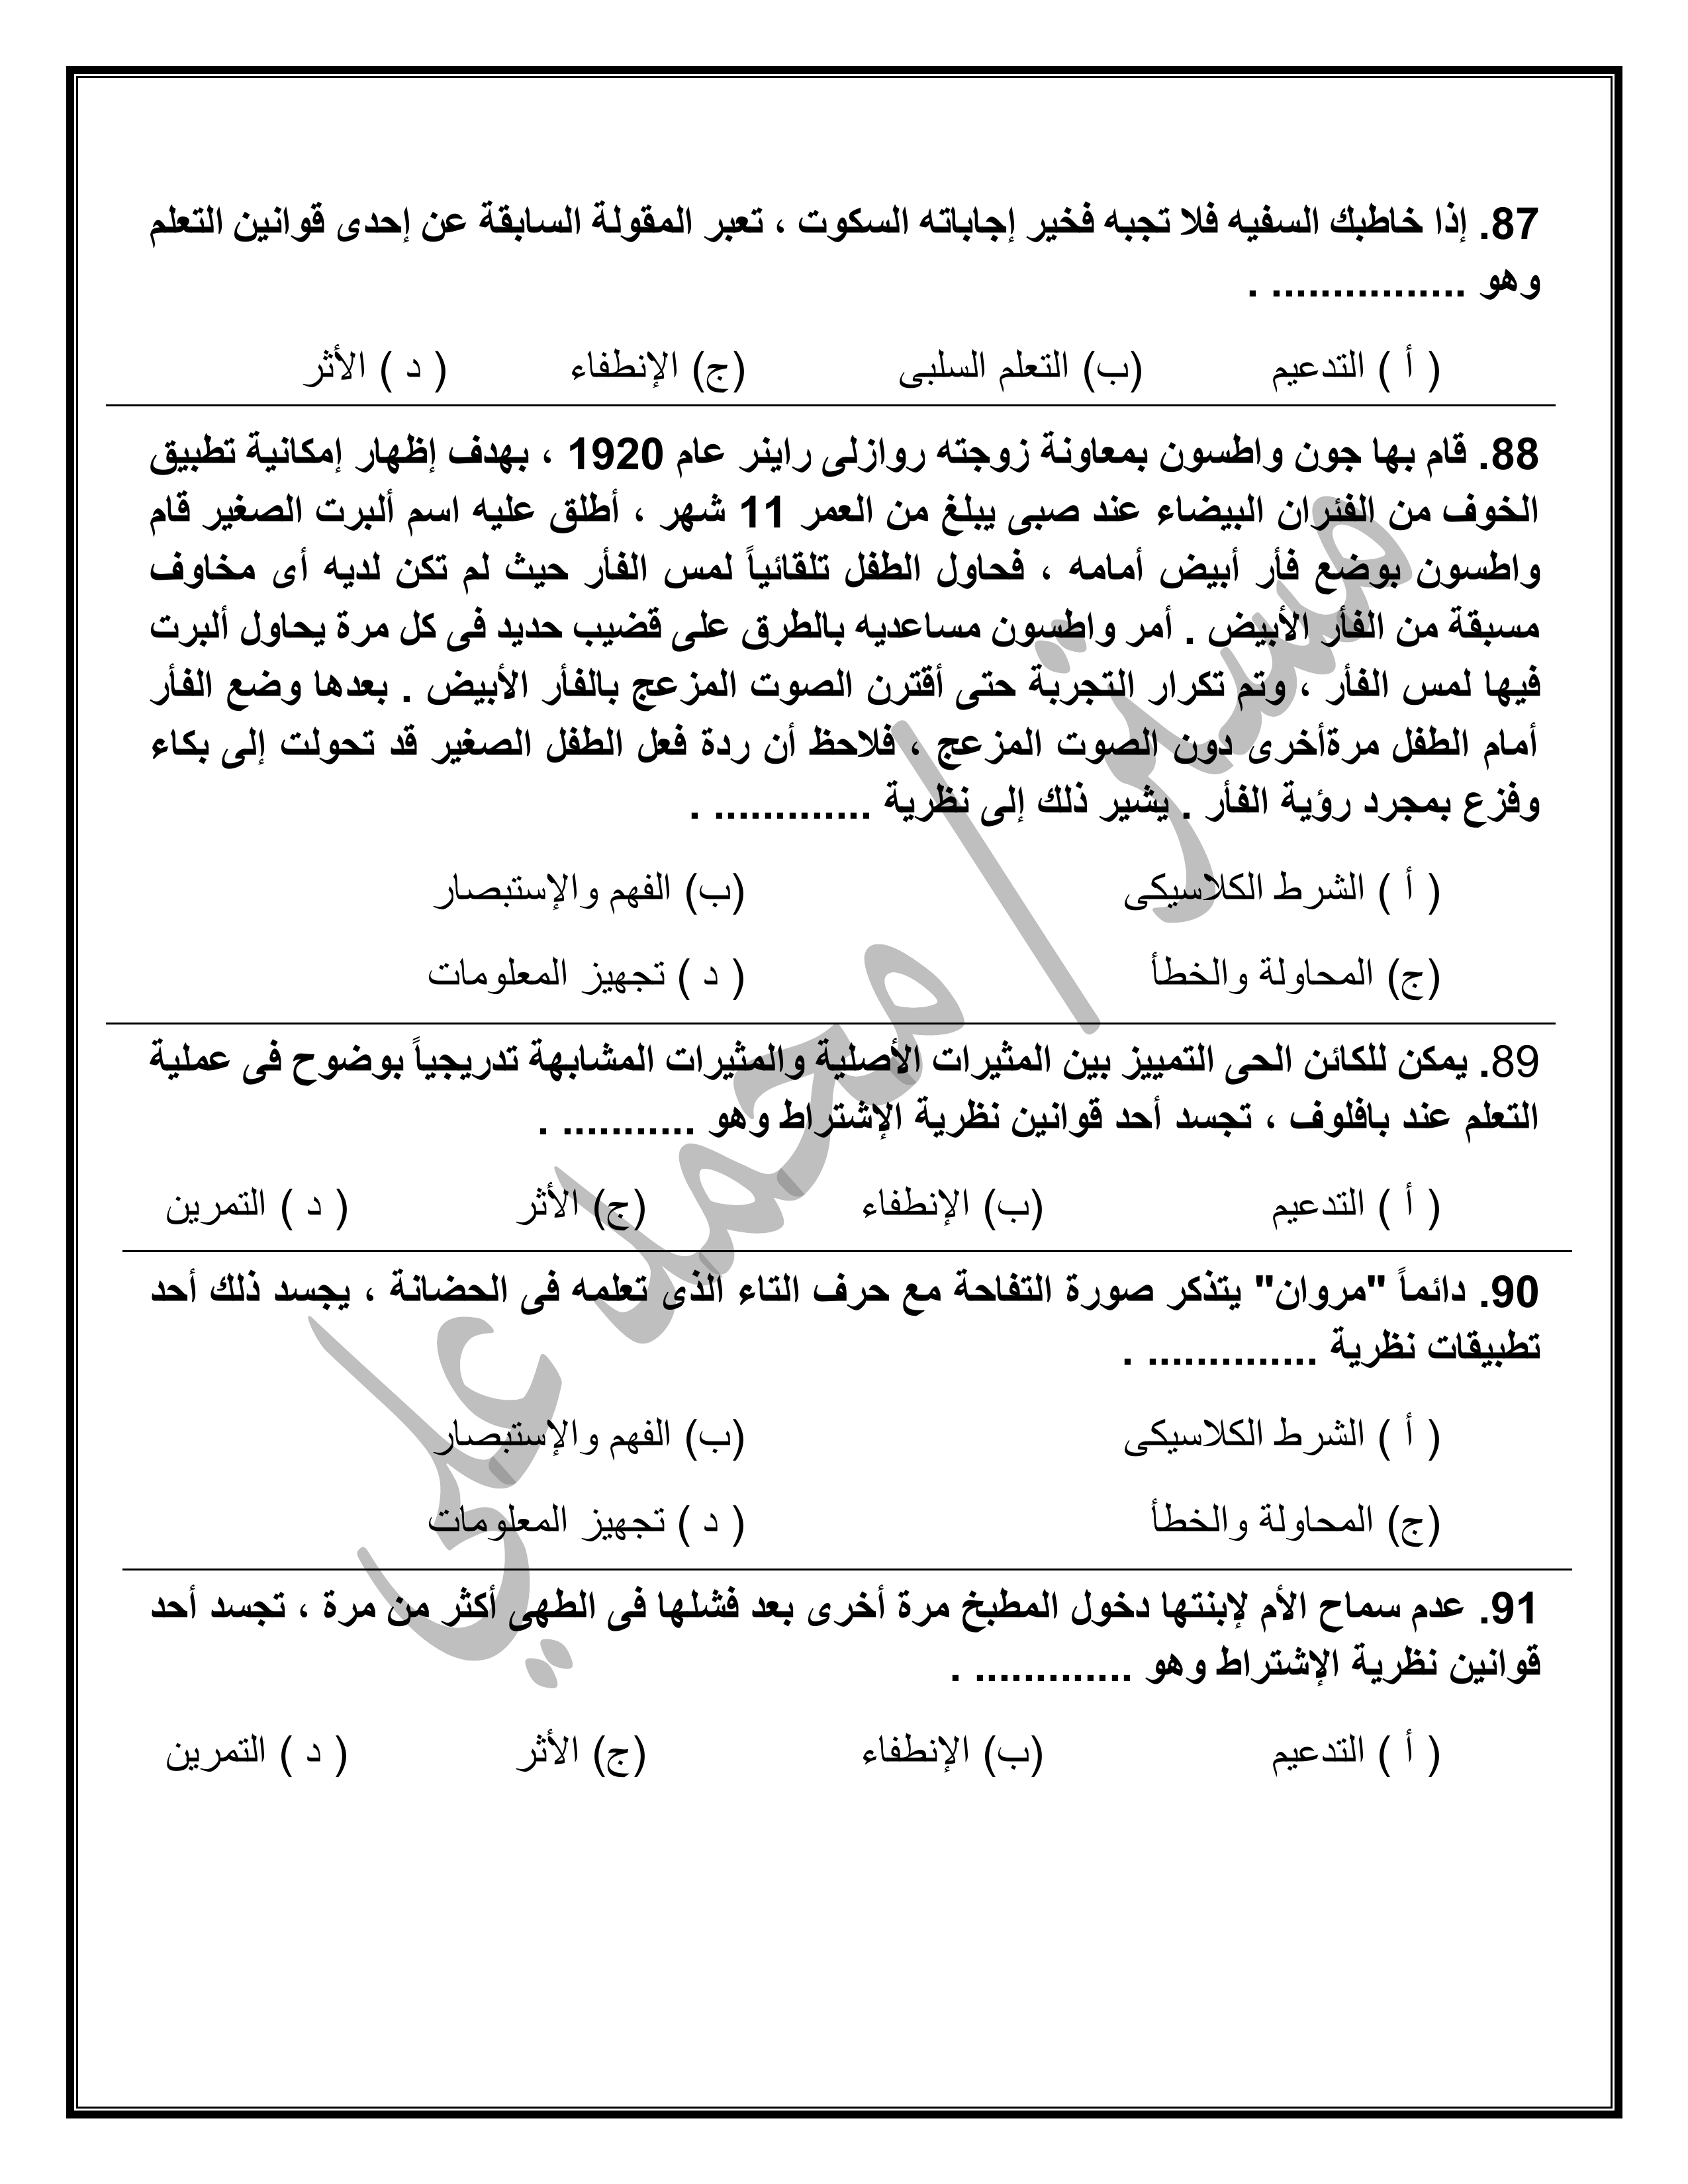 87. إذا خاطبك السفيه فلا تجبه فخير إجاباته السكوت ، تعبر المقولة السابقة عن إحدى قوانين التعلم
وهو ................ .
( أ ) التدعيم (ب) التعلم السلبى (ج) الإنطفاء ( د ) الأثر
88. قام بها جون واطسون بمعاونة زوجته روازلى راينر عام 1920 ، بهدف إظهار إمكانية تطبيق
الخوف من الفئران البيضاء عند صبى يبلغ من العمر 11 شهر ، أطلق عليه اسم ألبرت الصغير قام
واطسون بوضع فأر أبيض أمامه ، فحاول الطفل تلقائياً لمس الفأر حيث لم تكن لديه أى مخاوف
مسبقة من الفأر الأبيض . أمر واطسون مساعديه بالطرق على قضيب حديد فى كل مرة يحاول ألبرت
فيها لمس الفأر ، وتم تكرار التجربة حتى أقترن الصوت المزعج بالفأر الأبيض . بعدها وضع الفأر
أمام الطفل مرةأخرى دون الصوت المزعج ، فلاحظ أن ردة فعل الطفل الصغير قد تحولت إلى بكاء
وفزع بمجرد رؤية الفأر . يشير ذلك إلى نظرية ............. .
( أ ) الشرط الكلاسيكى (ب) الفهم والإستبصار
(ج) المحاولة والخطأ ( د ) تجهيز المعلومات
89. يمكن للكائن الحى التمييز بين المثيرات الأصلية والمثيرات المشابهة تدريجياً بوضوح فى عملية
التعلم عند بافلوف ، تجسد أحد قوانين نظرية الإشتراط وهو ........... .
( أ ) التدعيم (ب) الإنطفاء (ج) الأثر ( د ) التمرين
90. دائماً "مروان" يتذكر صورة التفاحة مع حرف التاء الذى تعلمه فى الحضانة ، يجسد ذلك أحد
تطبيقات نظرية .............. .
( أ ) الشرط الكلاسيكى (ب) الفهم والإستبصار
(ج) المحاولة والخطأ ( د ) تجهيز المعلومات
91. عدم سماح الأم لإبنتها دخول المطبخ مرة أخرى بعد فشلها فى الطهى أكثر من مرة ، تجسد أحد
قوانين نظرية الإشتراط وهو ............. .
( أ ) التدعيم (ب) الإنطفاء (ج) الأثر ( د ) التمرين
مستر/محمد علي